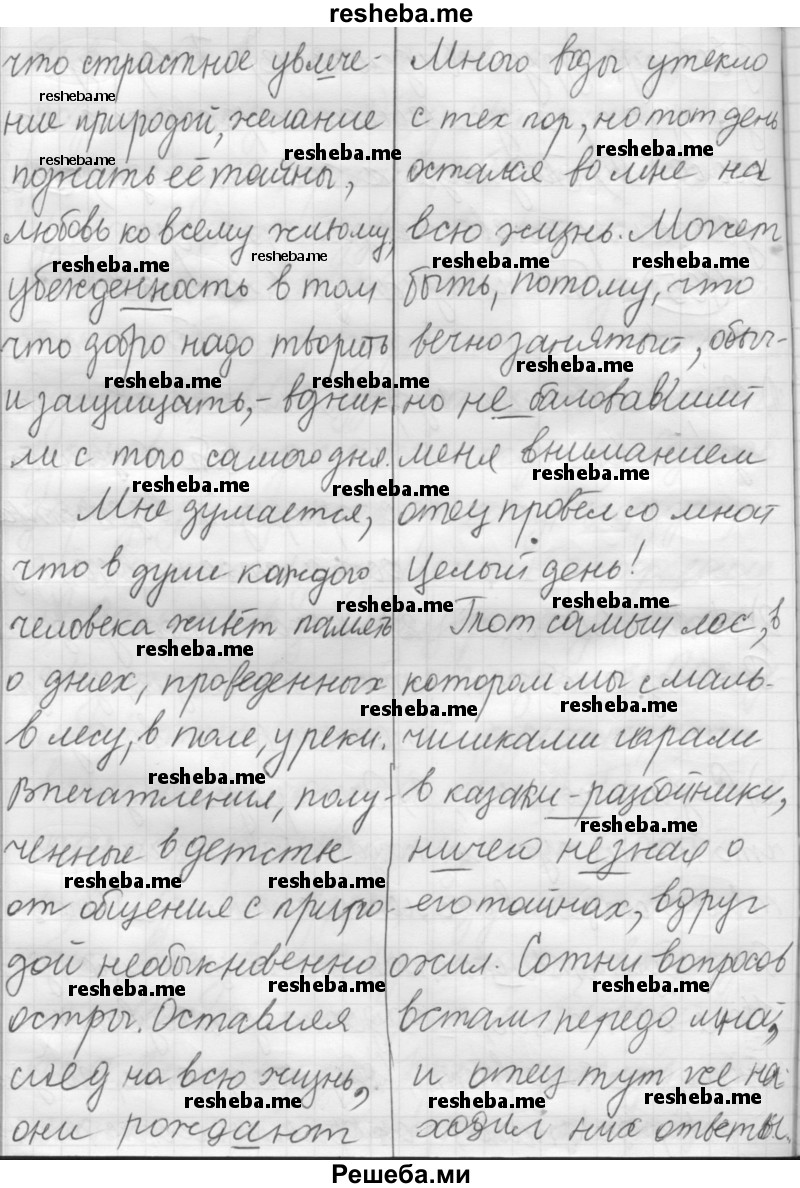 resheba.me
что страстное увлече-
ние природой, желание
познать её тайны,
любовь ко всему живому,
убежденность в том
что добро надо творить
и защищать, - вдник
ли с того самого дня.
Мне думается,
что в душе каждого
человека живёт память
о днях, проведенных
в лесу, в поле, у реки.
Впечатления, полу-
ченные в детстве
от общения с приро-
дой необыкновенно
остры. Оставляя
след на всю жизнь,
они рождают
Много воды утекло
с тех пор, но тот день
остался во мне на
всю жизнь. Может
быть, потому, что
вечно занятый, обыч-
но не баловавший
меня вниманием
отец провёл со мной
целый день!
Тот самый лес, в
котором мы с маль-
чишками играли
в казаки-разбойники,
ничего не зная о
его тайнах, вдруг
ожил. Сотни вопросов
встали передо мной,
и отец тут же на-
ходил них ответы.
Решеба.ми